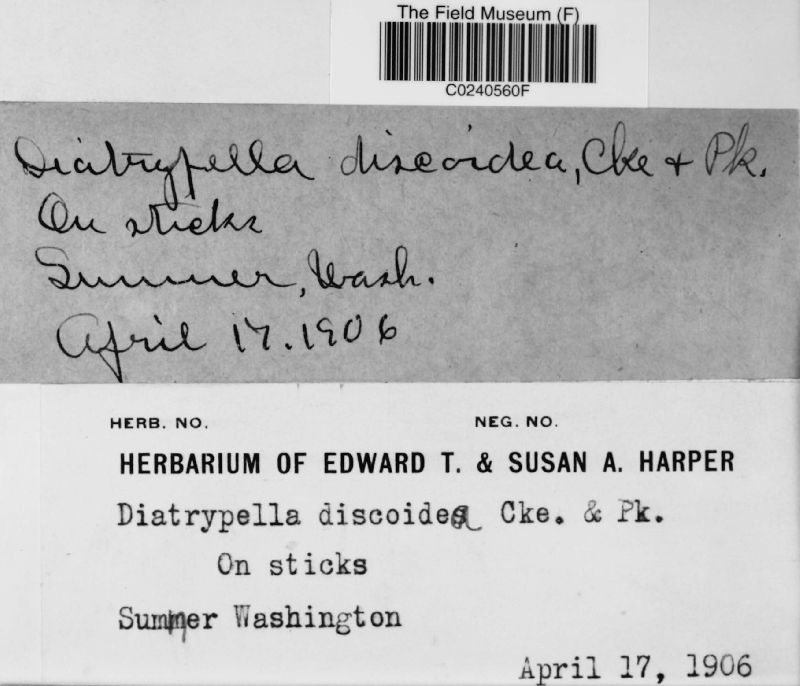 The Field Museum (F)
C0240560F
Diatrypella discoidea, Cke & Pk.
On sticks
Sumner, Wash.
April 17. 1906
HERB. NO. NEG. NO.
HERBARIUM OF EDWARD T. & SUSAN A. HARPER
Diatrypella discoidea Cke. & Pk.
On sticks
Sumner Washington
April 17, 1906